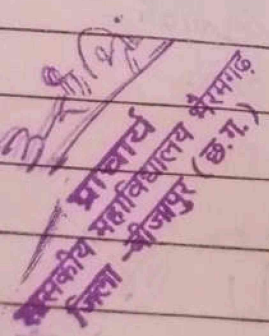 प्राचार्य
शासकीय महाविद्यालय भैरमगढ़
जिला -बीजापुर (छ.ग.)